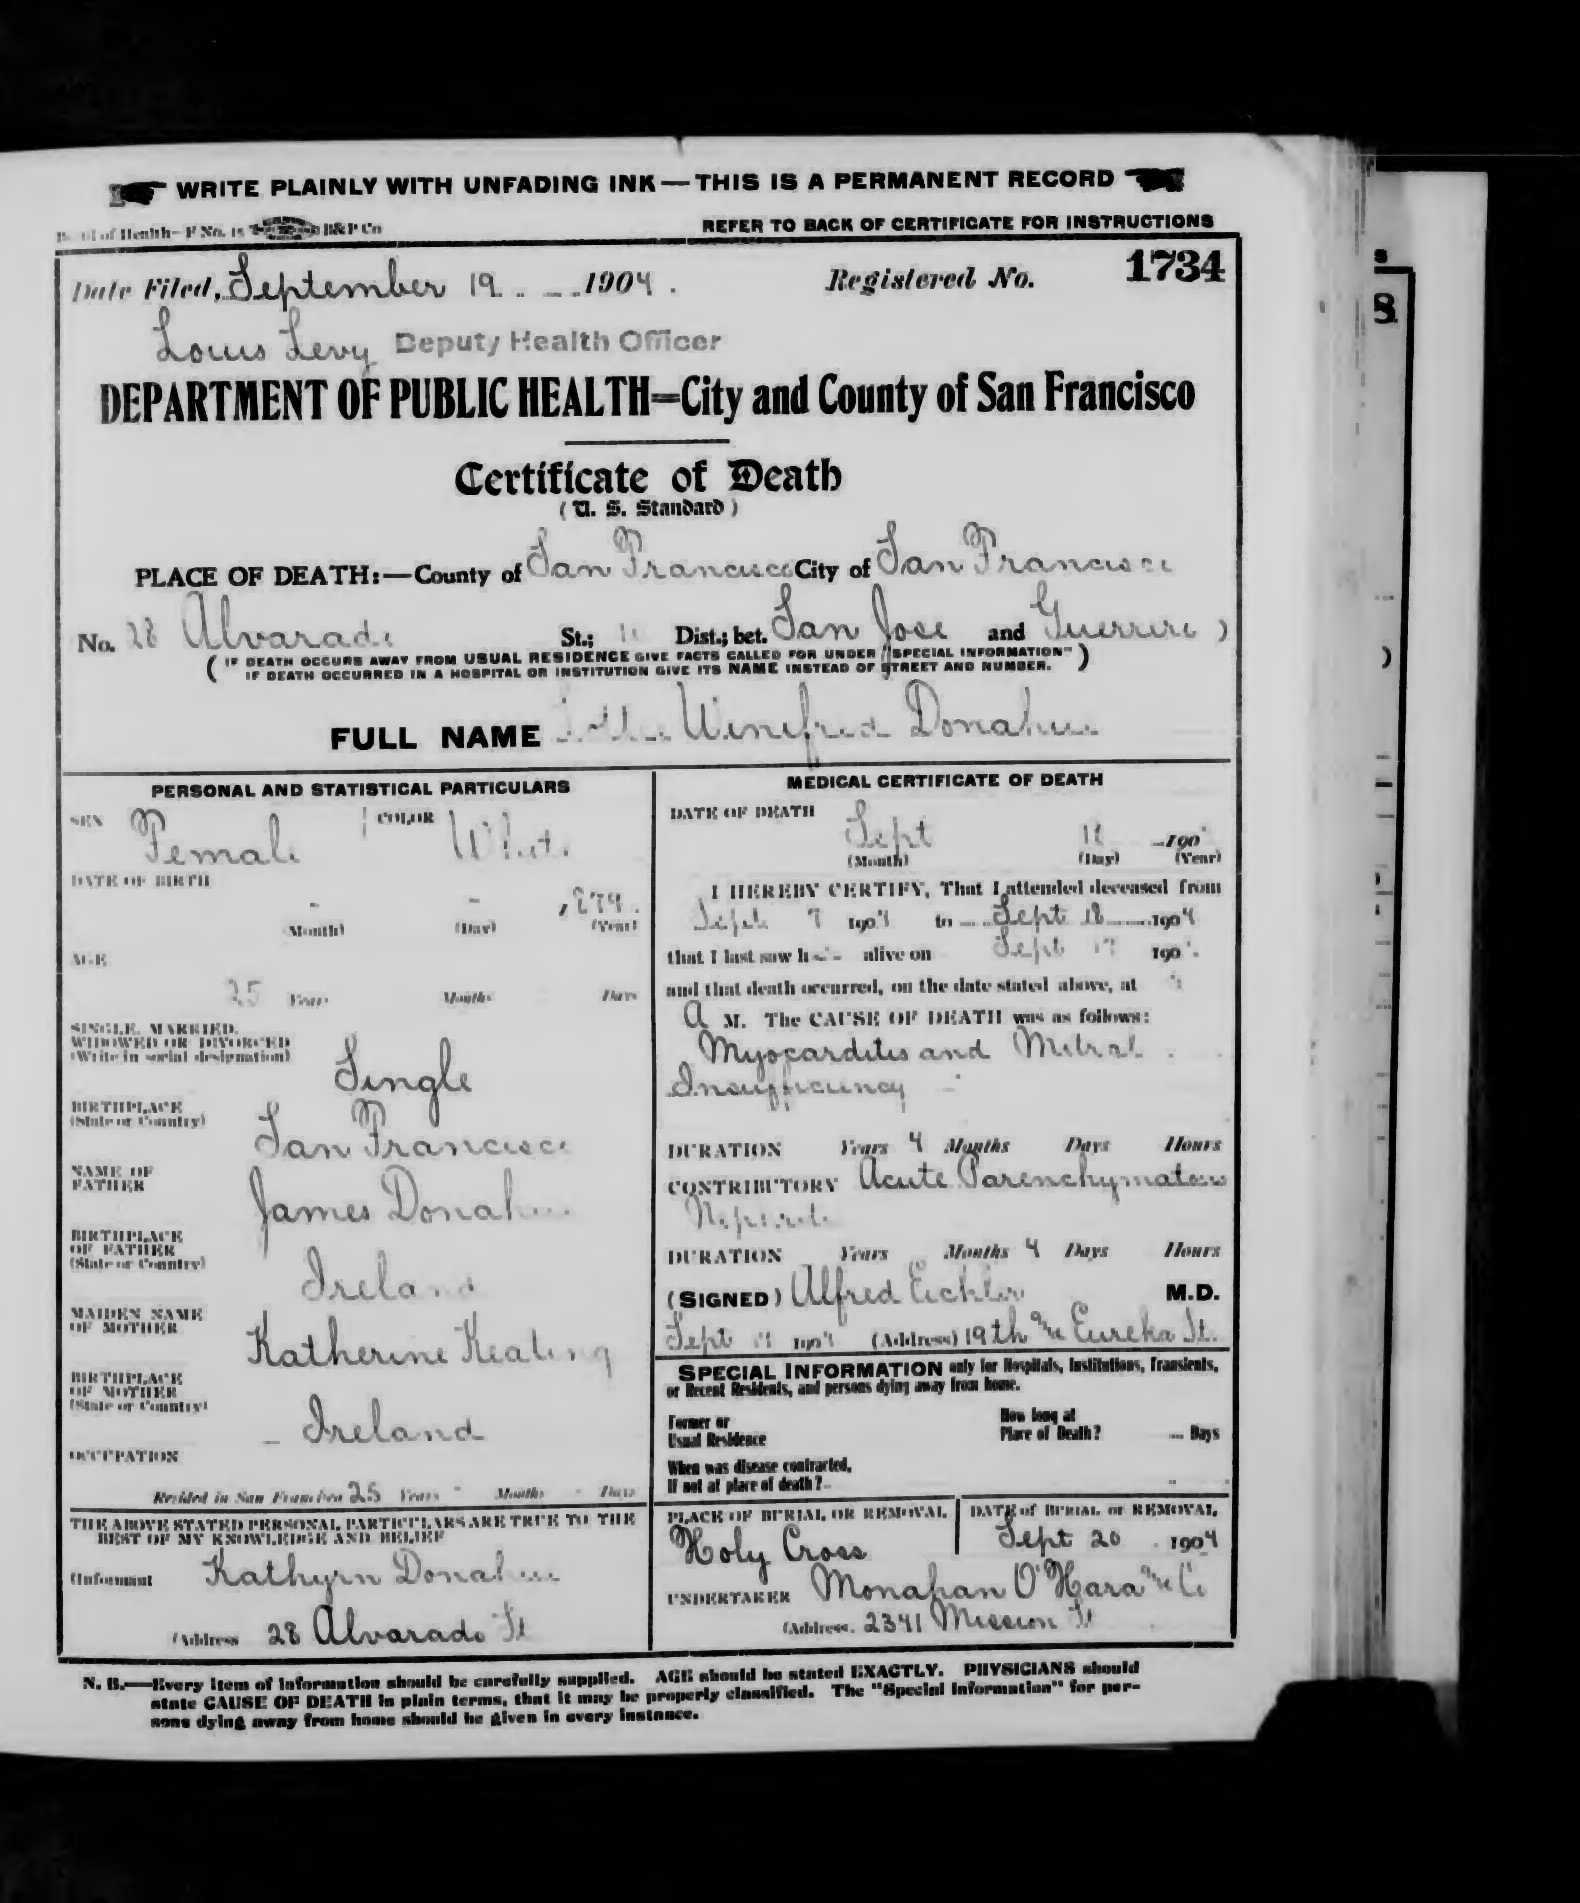 WRITE PLAINLY WITH UNFADING INK — THIS IS A PERMANENT RECORD
of Health—F No. 15 B&P Co
REFER TO BACK OF CERTIFICATE FOR INSTRUCTIONS
Date Filed, September 19 1904. Registered No. 1734
Louis Levy Deputy Health Officer
DEPARTMENT OF PUBLIC HEALTH=City and County of San Francisco
Certificate of Death
(U. S. Standard)
PLACE OF DEATH:—County of San Francisco City of San Francisco
No. 28 Alvarado St.; 11 Dist.; bet. San Jose and Guerrero )
( IF DEATH OCCURS AWAY FROM USUAL RESIDENCE GIVE FACTS CALLED FOR UNDER "SPECIAL INFORMATION"
IF DEATH OCCURRED IN A HOSPITAL OR INSTITUTION GIVE ITS NAME INSTEAD OF STREET AND NUMBER. )
FULL NAME Winifred Donahue
PERSONAL AND STATISTICAL PARTICULARS
SEX Female COLOR White
DATE OF BIRTH
1879
(Month) (Day) (Year)
AGE
25 Years Months Days
SINGLE, MARRIED,
WIDOWED OR DIVORCED
(Write in social designation)
Single
BIRTHPLACE
(State or Country)
San Francisco
NAME OF
FATHER
James Donahue
BIRTHPLACE
OF FATHER
(State or Country)
Ireland
MAIDEN NAME
OF MOTHER
Katherine Keating
BIRTHPLACE
OF MOTHER
(State or Country)
Ireland
OCCUPATION
Resided in San Francisco 25 Years - Months - Days
THE ABOVE STATED PERSONAL PARTICULARS ARE TRUE TO THE
BEST OF MY KNOWLEDGE AND BELIEF
(Informant Kathyrn Donahue
(Address 28 Alvarado St
MEDICAL CERTIFICATE OF DEATH
DATE OF DEATH
Sept 18 190
(Month) (Day) (Year)
I HEREBY CERTIFY, That I attended deceased from
Sept 7 1904 to Sept 18 1904
that I last saw h alive on Sept 17 190
and that death occurred, on the date stated above, at
A M. The CAUSE OF DEATH was as follows:
Myocarditis and Mitral
Insufficiency
DURATION Years 4 Months Days Hours
CONTRIBUTORY Acute Parenchymatous
Nephritis
DURATION Years Months 4 Days Hours
(SIGNED) Alfred Eichler M.D.
Sept 1904 (Address) 19th & Eureka St.
SPECIAL INFORMATION only for Hospitals, Institutions, Transients,
or Recent Residents, and persons dying away from home.
Former or
Usual Residence
How long at
Place of Death? Days
When was disease contracted,
If not at place of death?
PLACE OF BURIAL OR REMOVAL
Holy Cross
DATE of BURIAL or REMOVAL
Sept 20 1904
UNDERTAKER Monahan O'Hara & Co
(Address. 2341 Mission St
N. B.—Every item of information should be carefully supplied. AGE should be stated EXACTLY. PHYSICIANS should
state CAUSE OF DEATH in plain terms, that it may be properly classified. The "Special Information" for per-
sons dying away from home should be given in every instance.